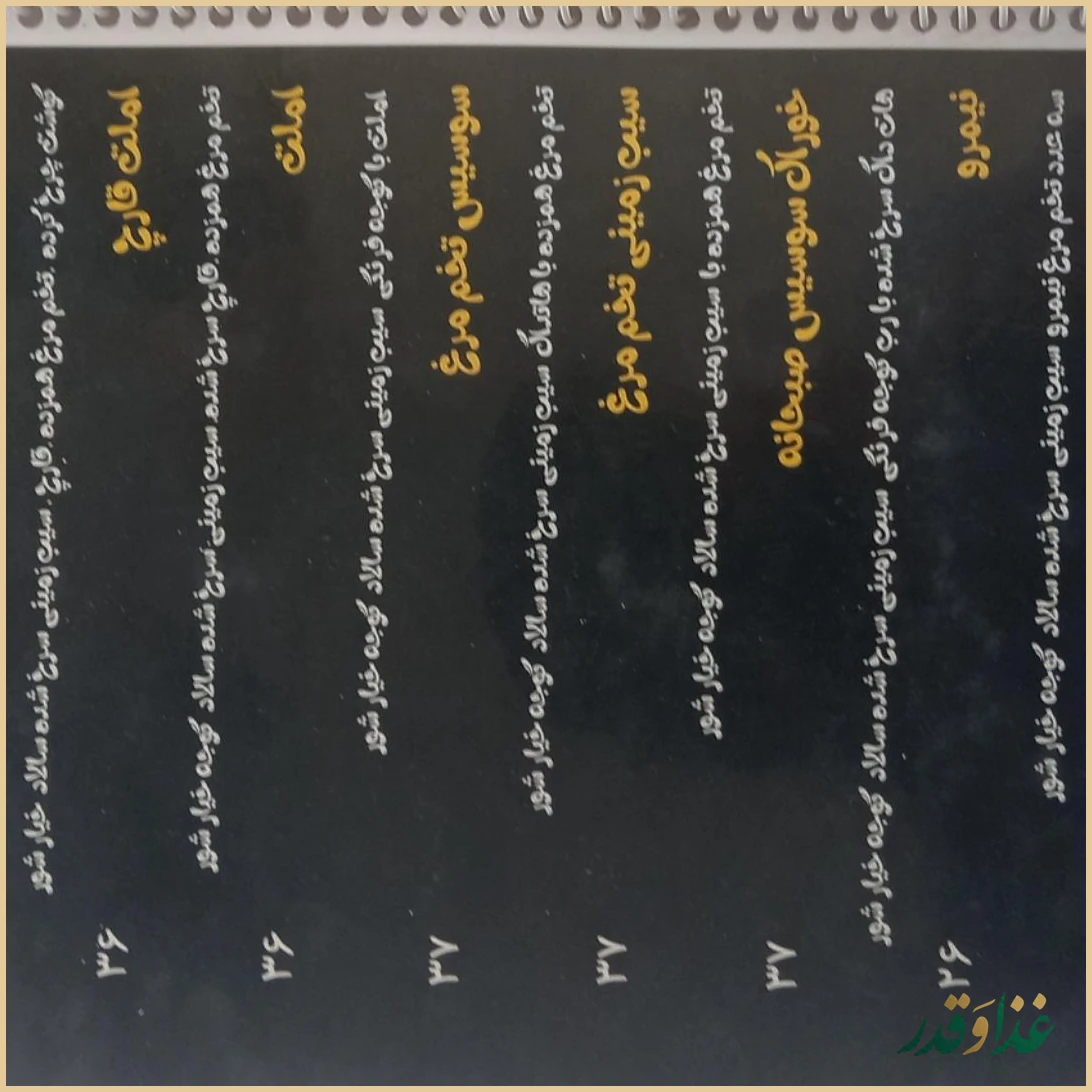 گوشت چرخ کرده .تخم مرغ همزده .قارچ . سیب زمینی سرخ شده سالاد خیار شور
املت قارچ ۳۶
تخم مرغ همزده .قارچ سرخ شده سیب زمینی سرخ شده سالاد گوجه خیار شور
املت ۳۶
املت با گوجه فرنگی سیب زمینی سرخ شده سالاد گوجه خیار شور
سوسیس تخم مرغ ۳۷
تخم مرغ همزده با هاتداگ سیب زمینی سرخ شده سالاد گوجه خیار شور
سیب زمینی تخم مرغ ۳۷
تخم مرغ همزده با سیب زمینی سرخ شده سالاد گوجه خیار شور
خوراک سوسیس صبحانه ۳۷
هات داگ سرخ شده با رب گوجه فرنگی سیب زمینی سرخ شده سالاد گوجه خیار شور
نیمرو ۲۶
سه عدد تخم مرغ نیمرو سیب زمینی سرخ شده سالاد گوجه خیار شور
غذا و قدر